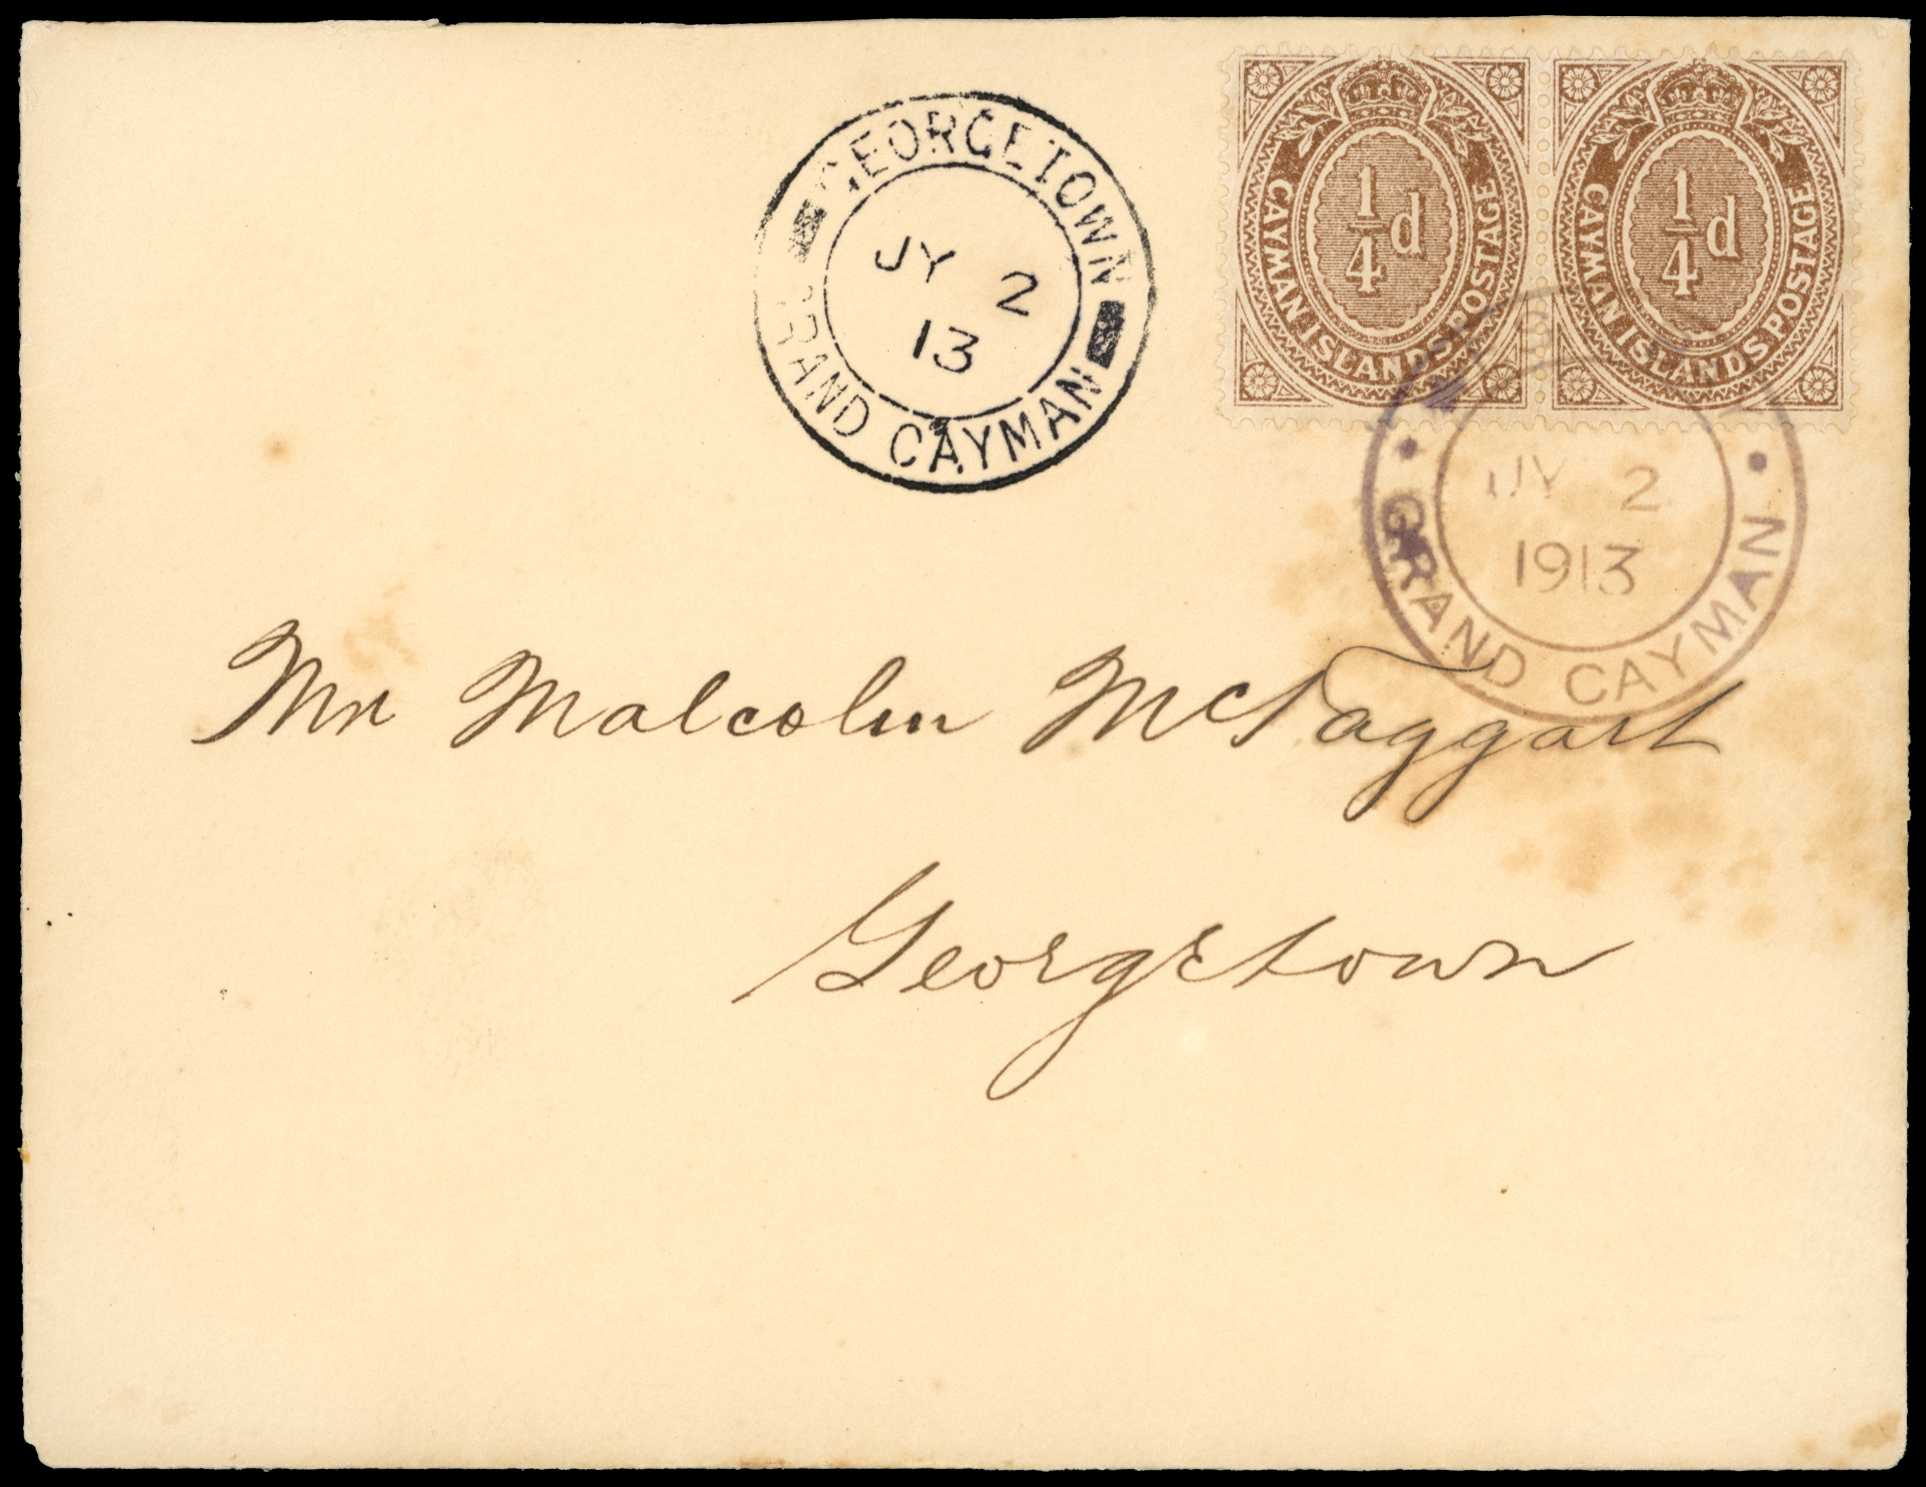 GEORGETOWN
JY 2
13
GRAND CAYMAN
1/4d
CAYMAN ISLANDS POSTAGE
1/4d
CAYMAN ISLANDS POSTAGE
JY 2
1913
GRAND CAYMAN
Mr Malcolm McTaggart
Georgetown